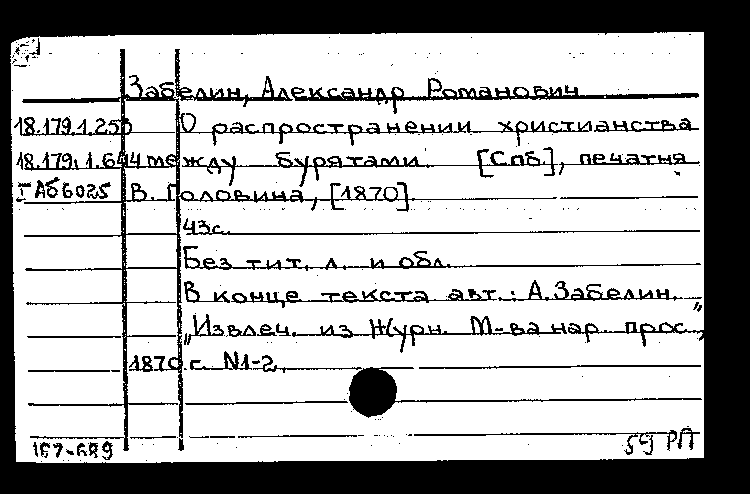 Забелин, Александр Романович
18.179.1.253 О распространении христианства
18.179.1.644 между бурятами [Спб.], печатня
I Аб6025 В. Головина, [1870].
43с.
Без тит. л. и обл.
В конце текста авт.: А. Забелин.
„Извлеч. из Журн. М-ва нар. прос.,"
1870 г. N1-2.
167-689 59 РП